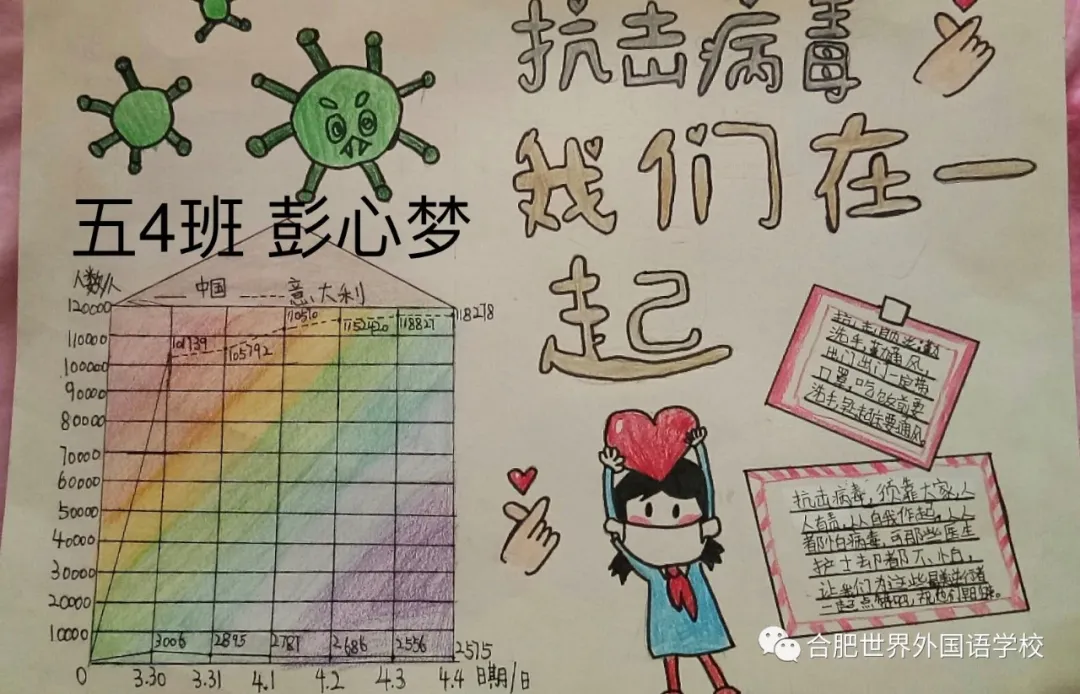 抗击病毒
我们在一
起
五4班 彭心梦
人数/人
中国 意大利
120000
110000
100000
90000
80000
70000
60000
50000
40000
30000
20000
10000
0
101739
105792
110510
115242
118827
118278
3006
2895
2781
2686
2556
2575
3.30 3.31 4.1 4.2 4.3 4.4 日期/日
洗手,勤通风,
出门出门一定带
口罩,吃饭前要
洗手,起床要通风。
抗击病毒,须靠大家,人
人有责,从自我作起,人人
都怕病毒,可那些医生
护士却都不怕,
让我们为这些最美逆行者
一起点赞吧,
合肥世界外国语学校